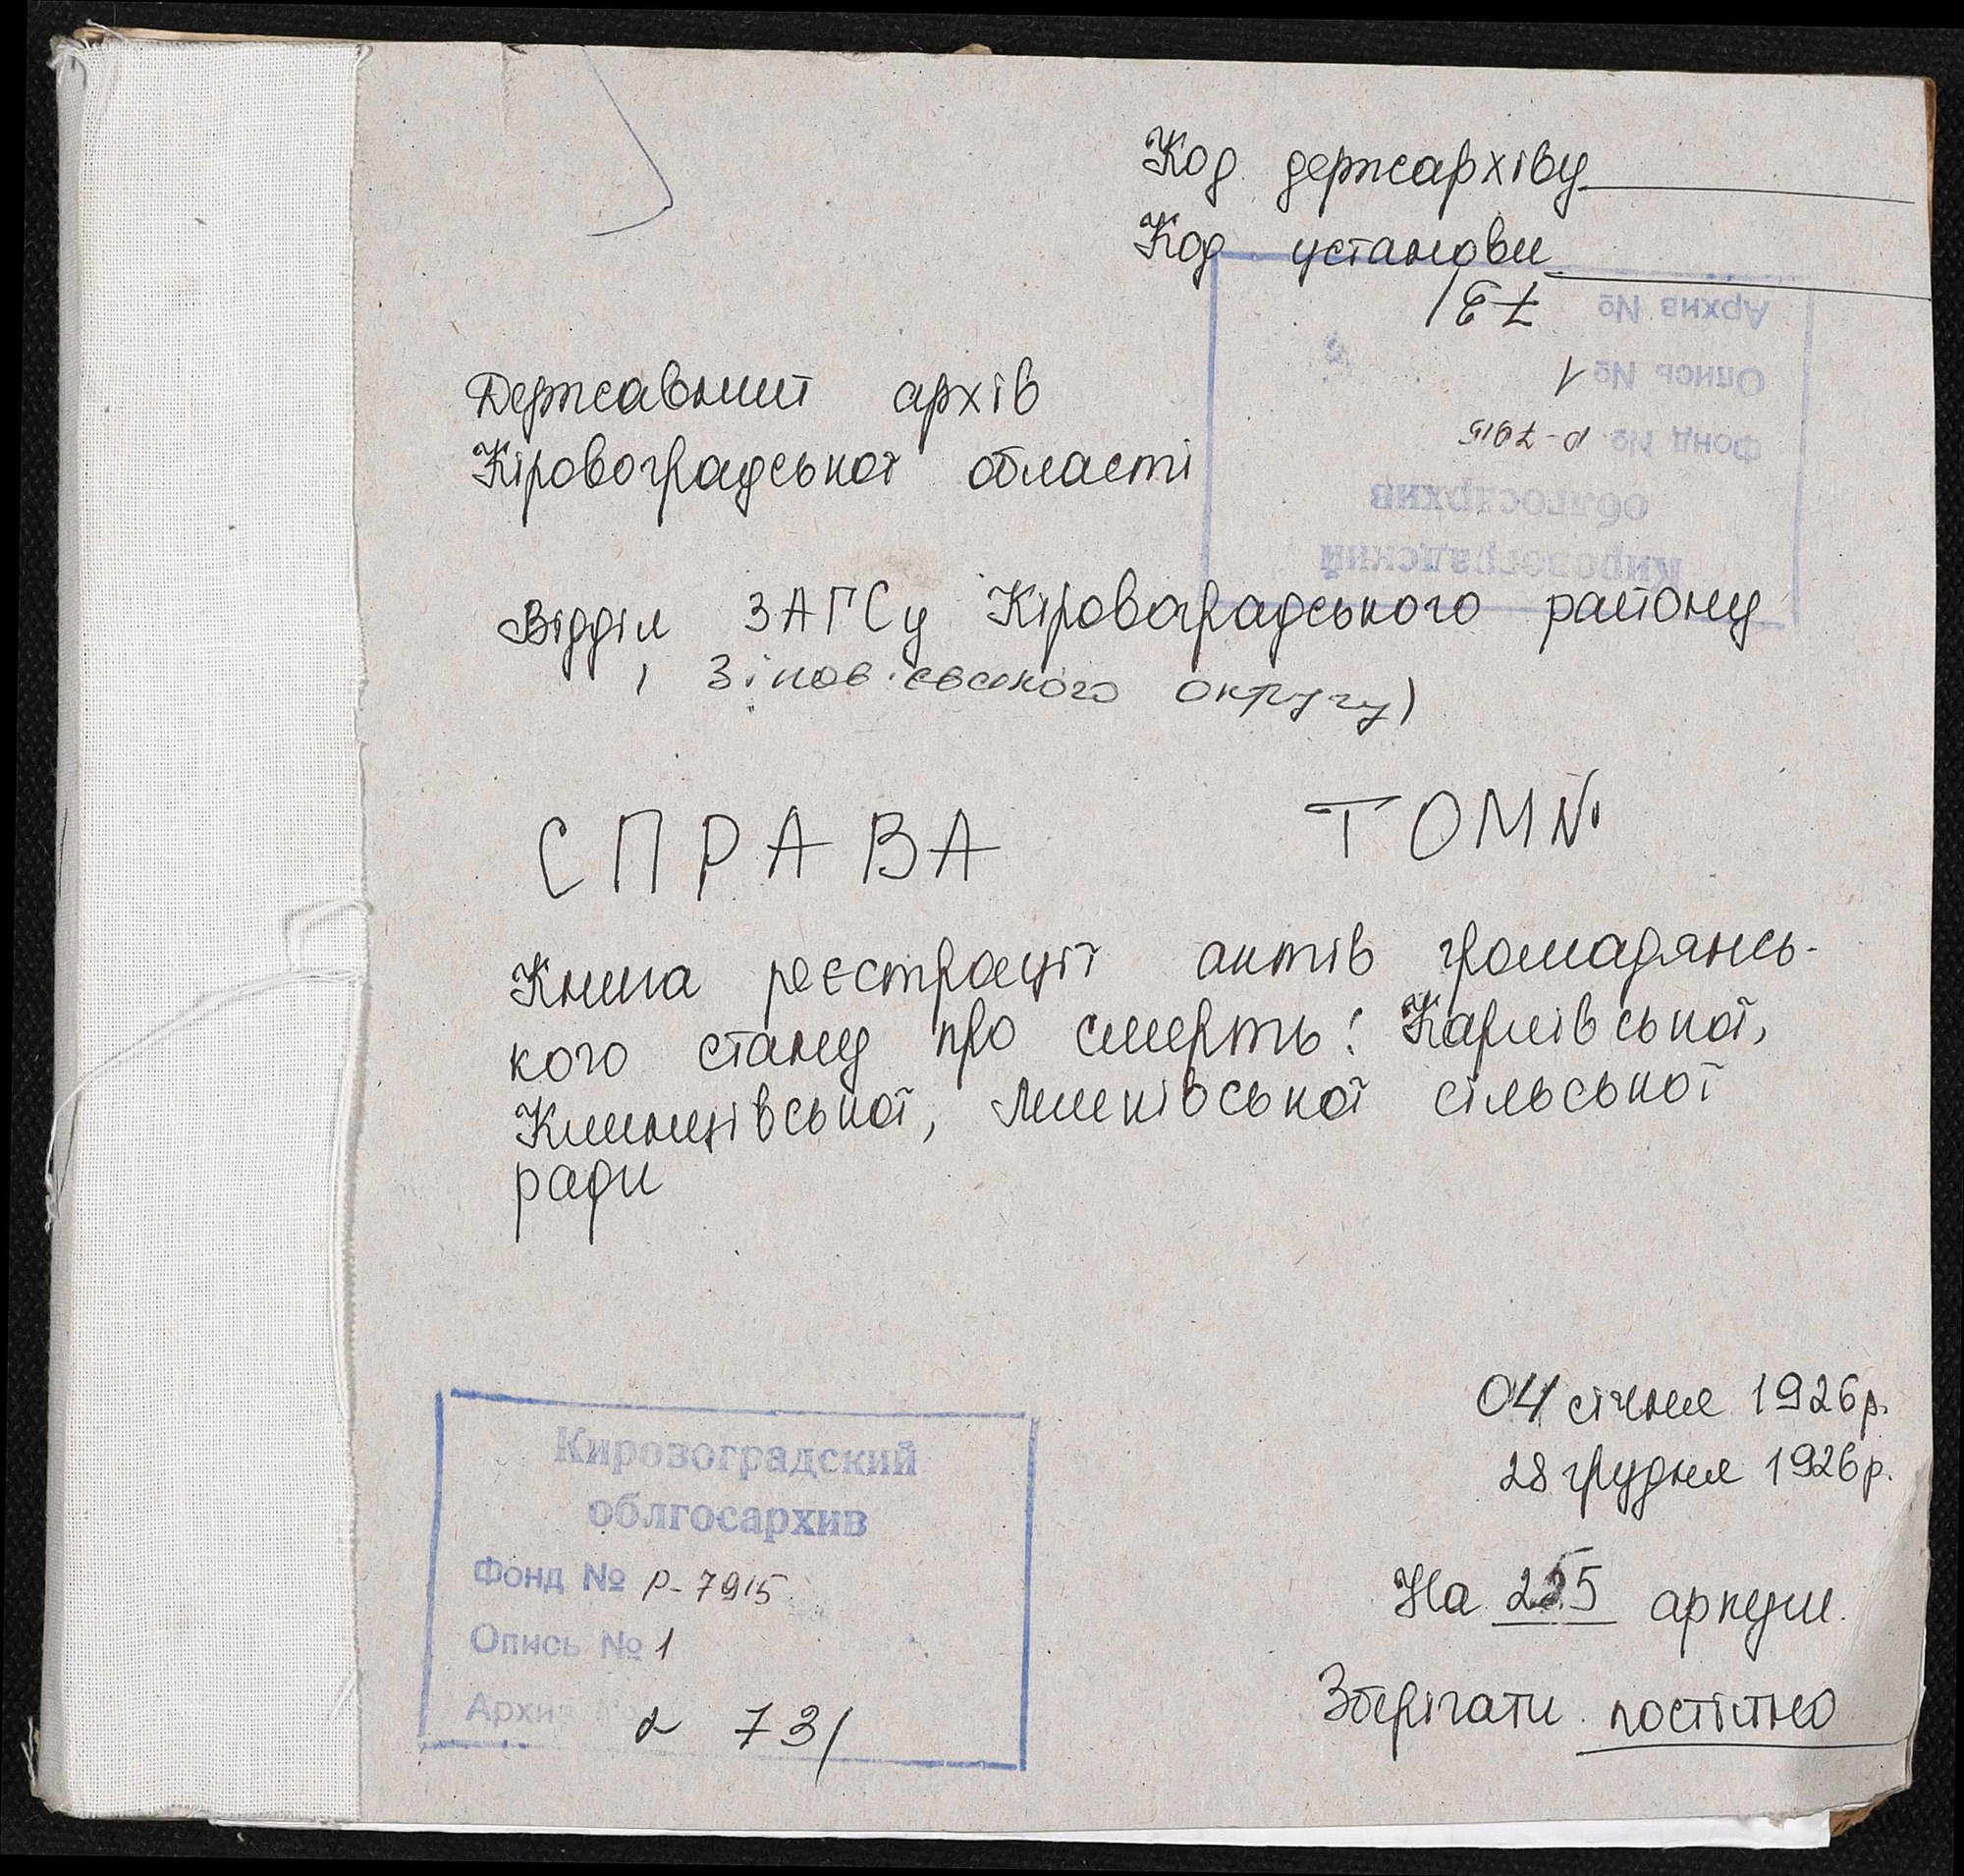 Код держархіву
Код установи
731
Архив №
Опись № 1
Фонд № Р-7915
облгосархив
Кировоградский
Державний архів
Кіровоградської області
Відділ ЗАГСу Кіровоградського району
(Зінов'євського округу)
СПРАВА ТОМ №
Книга реєстрації актів громадянсь-
кого стану про смерть: Карлівської,
Клинцівської, Лелеківської сільської
ради
04 січня 1926р.
28 грудня 1926р.
На 255 аркуш.
Зберігати постійно
Кировоградский
облгосархив
Фонд № Р-7915
Опись № 1
Архив № 731